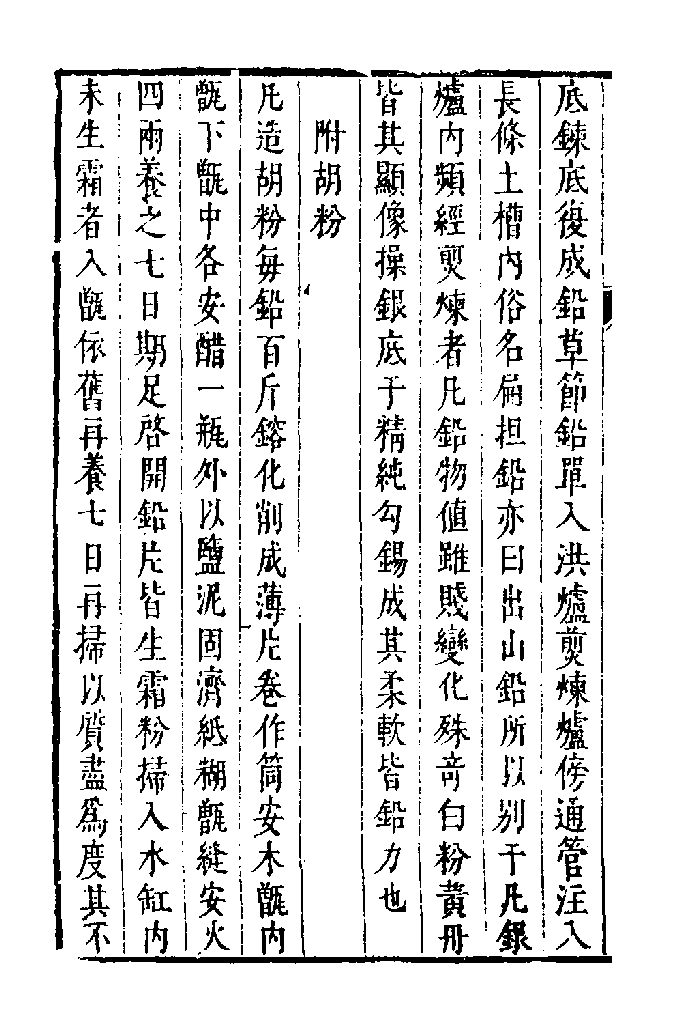 底鍊底復成鉛草節鉛單入洪爐煎煉爐傍通管注入
長條土槽內俗名扁担鉛亦曰出山鉛所以别于凡銀
爐內頻經煎煉者凡鉛物值雖賤變化殊竒白粉黃丹
皆其顯像操銀底于精純勾錫成其柔軟皆鉛力也
附胡粉
凡造胡粉每鉛百斤鎔化削成薄片卷作筒安木甑內
甑下甑中各安醋一瓶外以鹽泥固濟紙糊甑縫安火
四兩養之七日期足啓開鉛片皆生霜粉掃入水缸內
未生霜者入甑依舊再養七日再掃以質盡爲度其不